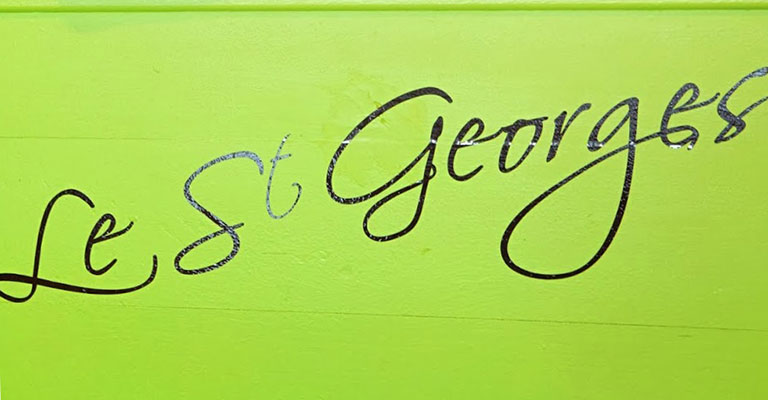 Le St Georges